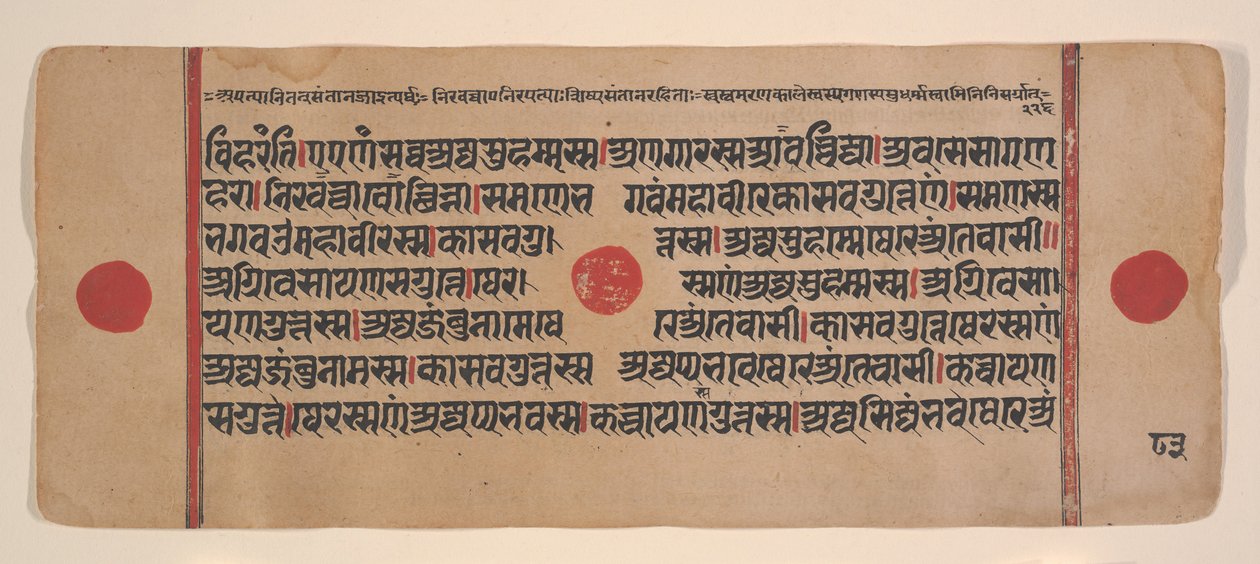 अपत्यानितत्संतानजाइत्यर्घः= निरवच्चाएनिरपत्याः शिष्यसंतानरहिताः= स्वस्वमरणकालेस्वस्वगणस्यसुधर्म्मस्वामिनि
२२६
विहरंति।एएणंसव्वेअज्जसुहम्मस्स।अणगारस्सआवच्चिज्जा।अवसेसागण
हरा।निरवच्चावोच्छिन्ना।समणेभगवंमहावीरेकासवगुत्तेणं।समणस्स
भगवउमहावीरस्स।कासवगुत्तस्स।अज्जसुहम्मेथेरेअंतेवासी॥
अग्गिवेसायणसगुत्ते।थेरस्सणंअज्जसुहम्मस्स।अग्गिवेसा
यणगुत्तस्स।अज्जजंबुनामेथेरेअंतेवासी।कासवगुत्तेथेरस्सणं
अज्जजंबुनामस्स।कासवगुत्तस्सअज्जप्पभवेथेरेअंतेवासी।कच्चायण
सगुत्ते।थेरस्सणंअज्जप्पभवस्स।कच्चायणगुत्तस्स।अज्जसिज्जंभवेथेरेअं
८३